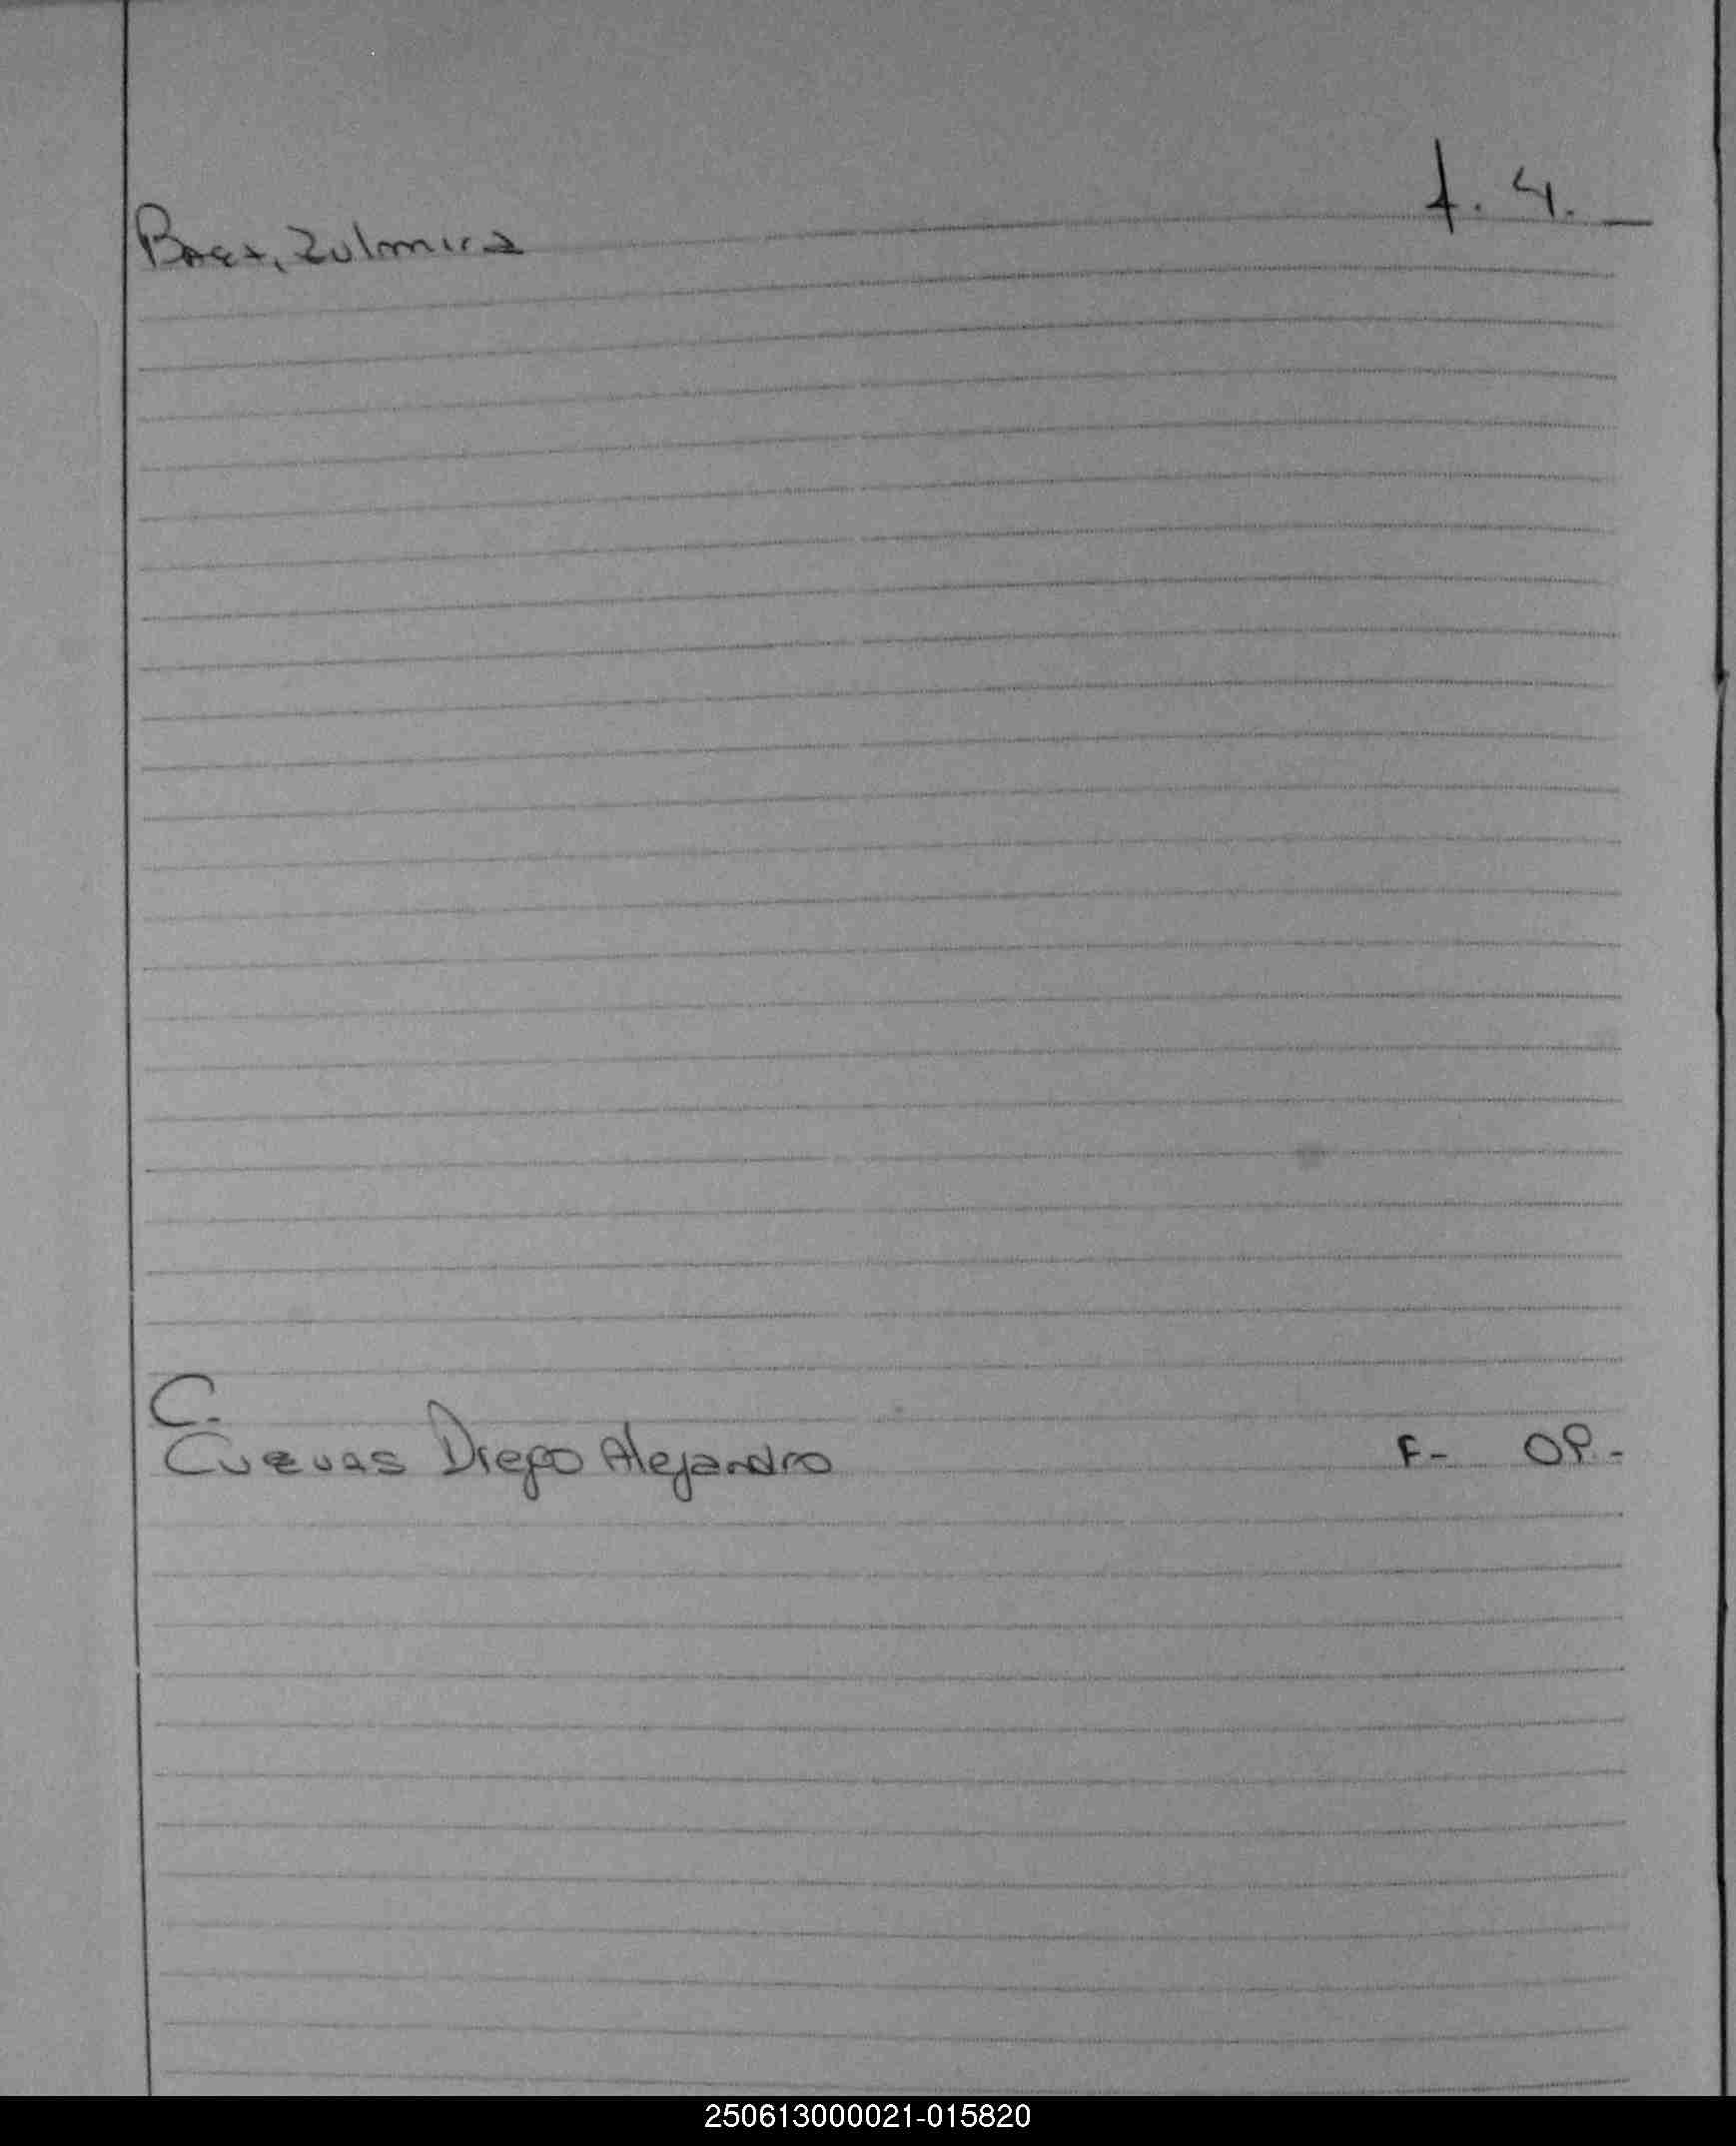 Baez, Zulmira f. 4. _
C.
Cuevas Diego Alejandro F- 09.-
250613000021-015820